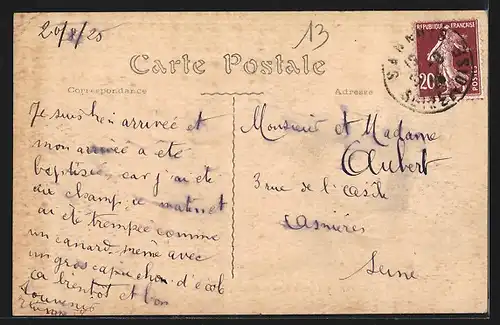 20/8/25
13
Carte Postale
Correspondance
Adresse
REPUBLIQUE FRANÇAISE
20
POSTES
Je suis bien arrivée et
mon arrivée a été
baptisée, car j'ai été
au champ ce matin et
ai été trempée comme
un canard même avec
un gros capuchon d'école
ça bientôt et bon
souvenir
Monsieur et Madame
Aubert
3 rue de l'
Asnières
Seine